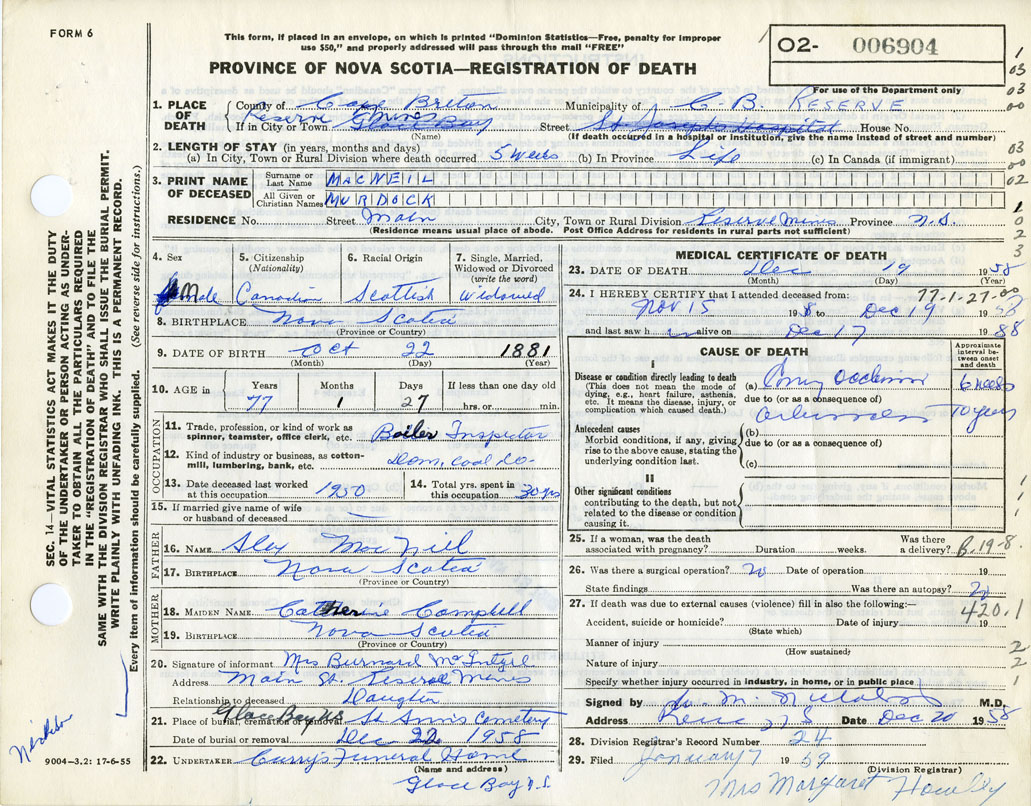 FORM 6
This form, if placed in an envelope, on which is printed "Dominion Statistics—Free, penalty for improper
use $50," and properly addressed will pass through the mail "FREE"
O2- 006904
PROVINCE OF NOVA SCOTIA—REGISTRATION OF DEATH
For use of the Department only
1. PLACE OF DEATH
County of Cape Breton Municipality of C.B. RESERVE
Reserve Mines
If in City or Town Glace Bay Street St Joseph's Hospital House No.
(Name) (If death occurred in a hospital or institution, give the name instead of street and number)
2. LENGTH OF STAY (in years, months and days)
(a) In City, Town or Rural Division where death occurred 5 weeks (b) In Province Life (c) In Canada (if immigrant)
3. PRINT NAME OF DECEASED
Surname or Last Name MACNEIL
All Given or Christian Names MURDOCK
RESIDENCE No. Street Main City, Town or Rural Division Reserve Mines Province N.S.
(Residence means usual place of abode. Post Office Address for residents in rural parts not sufficient)
4. Sex male
5. Citizenship (Nationality) Canadian
6. Racial Origin Scottish
7. Single, Married, Widowed or Divorced (write the word) Widowed
8. BIRTHPLACE Nova Scotia
(Province or Country)
9. DATE OF BIRTH Oct 22 1881
(Month) (Day) (Year)
10. AGE in Years Months Days If less than one day old
77 1 27 hrs. or min.
OCCUPATION
11. Trade, profession, or kind of work as spinner, teamster, office clerk, etc. Boiler Inspector
12. Kind of industry or business, as cotton-mill, lumbering, bank, etc. Dom, Coal Co-
13. Date deceased last worked at this occupation 1950
14. Total yrs. spent in this occupation 30 yrs
15. If married give name of wife or husband of deceased —
FATHER
16. NAME Alex MacNill
17. BIRTHPLACE Nova Scotia
(Province or Country)
MOTHER
18. MAIDEN NAME Catherine Campbell
19. BIRTHPLACE Nova Scotia
(Province or Country)
20. Signature of informant Mrs Burnard McIntyre
Address Main St. Reserve Mines
Relationship to deceased Daughter
21. Place of burial, cremation or removal Glace Bay NS St Ann's Cemetery
Date of burial or removal Dec 22 1958
22. UNDERTAKER Curry's Funeral Home
(Name and address)
Glace Bay N.S.
MEDICAL CERTIFICATE OF DEATH
23. DATE OF DEATH Dec 19 1958
(Month) (Day) (Year)
77-1-27-00
24. I HEREBY CERTIFY that I attended deceased from:
Nov 15 1958 to Dec 19 19
and last saw h alive on Dec 17 19
CAUSE OF DEATH
Approximate interval between onset and death
I
Disease or condition directly leading to death
(This does not mean the mode of dying, e.g., heart failure, asthenia, etc. It means the disease, injury, or complication which caused death.)
(a) 6 weeks
due to (or as a consequence of) 10 years
Antecedent causes
Morbid conditions, if any, giving rise to the above cause, stating the underlying condition last.
(b)
due to (or as a consequence of)
(c)
II
Other significant conditions
contributing to the death, but not related to the disease or condition causing it.
25. If a woman, was the death associated with pregnancy? Duration weeks. Was there a delivery? B.19-8
26. Was there a surgical operation? no Date of operation 19
State findings Was there an autopsy? no
27. If death was due to external causes (violence) fill in also the following:—
420.1
Accident, suicide or homicide? Date of injury 19
(State which)
Manner of injury
(How sustained)
Nature of injury
Specify whether injury occurred in industry, in home, or in public place
Signed by M.D.
Address N S Date Dec 20 1958
28. Division Registrar's Record Number 24
29. Filed January 7 1959
(Division Registrar)
Mrs Margaret
SEC. 14—VITAL STATISTICS ACT MAKES IT THE DUTY
OF THE UNDERTAKER OR PERSON ACTING AS UNDER-
TAKER TO OBTAIN ALL THE PARTICULARS REQUIRED
IN THE "REGISTRATION OF DEATH" AND TO FILE THE
SAME WITH THE DIVISION REGISTRAR WHO SHALL ISSUE THE BURIAL PERMIT.
WRITE PLAINLY WITH UNFADING INK. THIS IS A PERMANENT RECORD.
Every item of information should be carefully supplied. (See reverse side for instructions.)
9004—3.2: 17-6-55